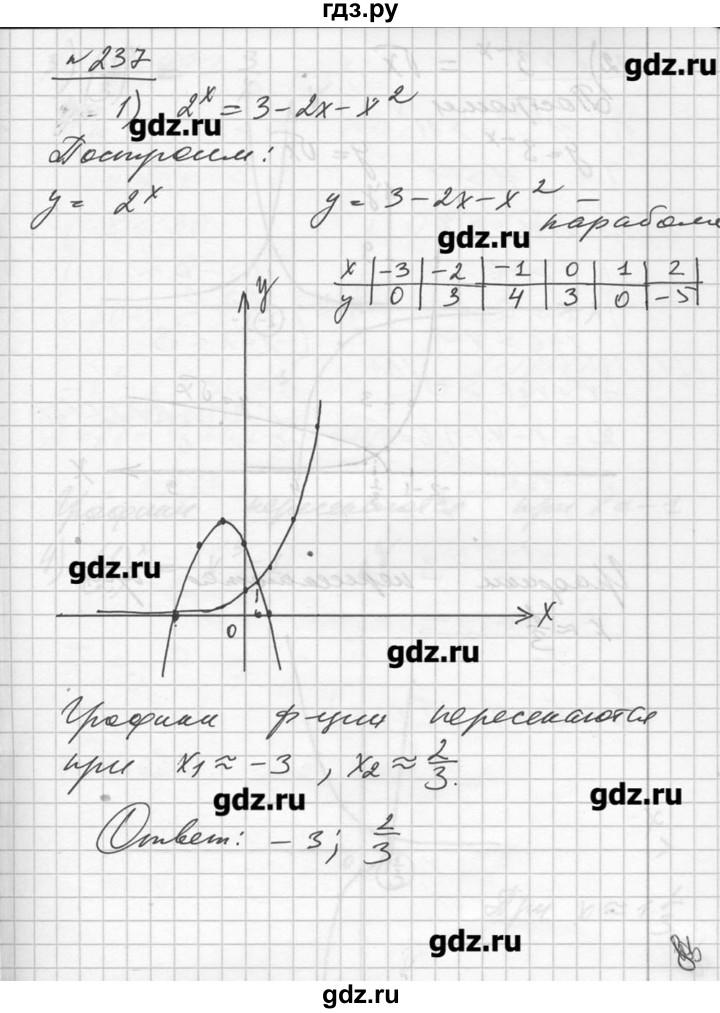 гдз.ру
№237
gdz.ru
1) 2^x = 3 - 2x - x^2
gdz.ru
Построим:
y = 2^x y = 3 - 2x - x^2 –
парабола
gdz.ru
x | -3 | -2 | -1 | 0 | 1 | 2
y | 0 | 3 | 4 | 3 | 0 | -5
y
gdz.ru
0 x
gdz.ru
Графики ф-ции пересекаются
при x1 ≈ -3 , x2 ≈ 2/3.
gdz.ru gdz.ru
Ответ: -3; 2/3
gdz.ru
gdz.ru